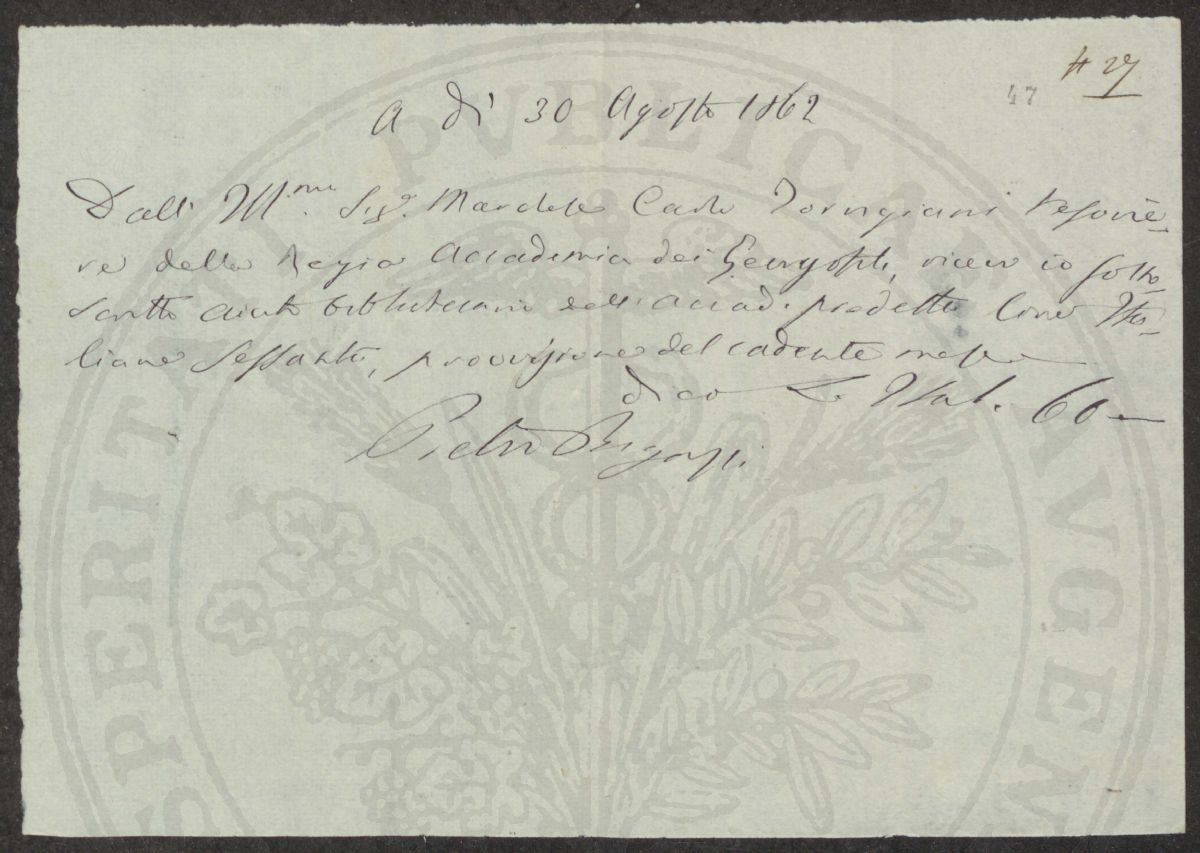 # 27
47
A dì 30 Agosto 1862
Dall' Ill.mo Sig.e Marchese Carlo Torrigiani Tesorie-
re della Regia Accademia dei Georgofili, ricevo io sotto-
scritto aiuto bibliotecario dell' Accad. predetta Lire Ita-
liane Sessanta, provvisione del cadente mese
dico L. Ital. 60 —
Pietro
PROSPERITATI PVBLICAE AVGEN